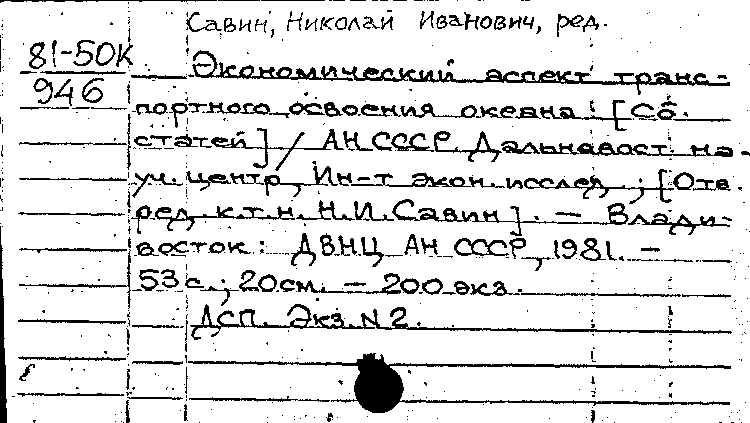 Савин, Николай Иванович, ред.
81-50К
946
Экономический аспект транс-
портного освоения океана : [Сб.
статей] / АН СССР. Дальневост. на-
уч. центр, Ин-т экон. исслед. ; [Отв.
ред. к.т.н. Н.И. Савин]. — Влади-
восток : ДВНЦ АН СССР, 1981. —
53 с. ; 20 см. — 200 экз.
ДСП. Экз. N 2.